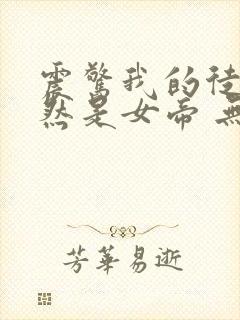 震驚我的徒
然是女帝 無
芳華易逝